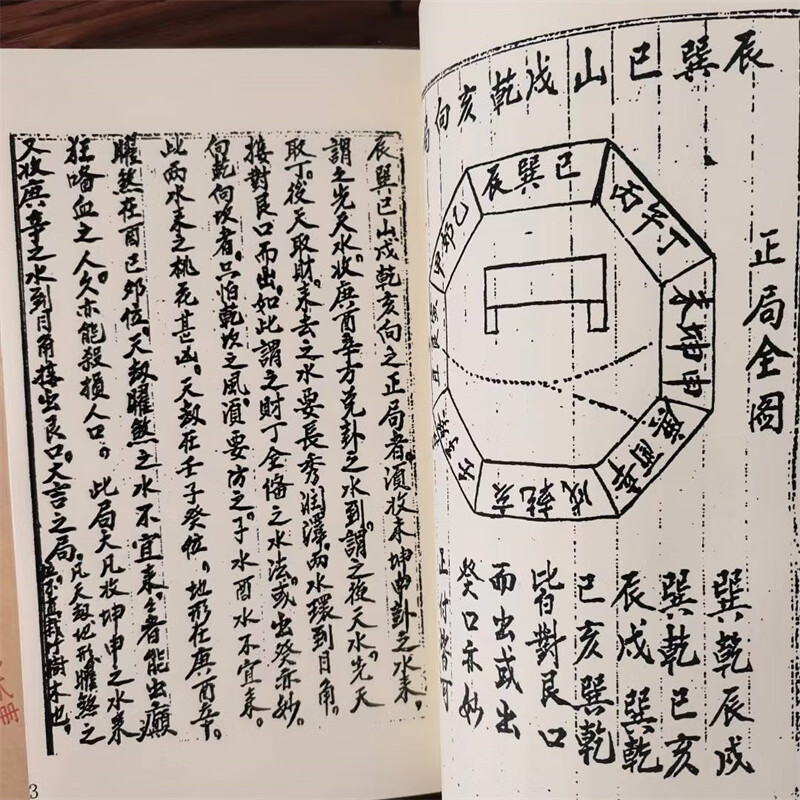 辰巽巳山戌乾亥向
正局全圖
辰巽巳
丙午丁
未坤申
庚酉辛
戌乾亥
甲卯乙
巽乾辰戌
巽乾巳亥
辰戌巽乾
巳亥巽乾
皆對艮口
而出或出
癸口亦妙
正付皆可
辰巽巳山戌乾亥向之正局者。須收未坤申卦之水來。
謂之先天水。收庚酉辛方兌卦之水到。謂之後天水。先天
取丁。後天取財。來去之水要長秀潤澤。兩水環到目角。
接對艮口而出。如此謂之財丁全俻之水法。或出癸亦妙。
向乾向坟者。只怕乾坟之風。須要防之。子水酉水不宜來。
此兩水來之桃花甚凶。天劫在壬子癸位。地形在庚酉辛。
臞煞在酉巳卯位。天劫臞煞之水不宜來。々者能出癲
狂咯血之人。久亦能殺損人口。此局大凡收坤申之水來
又收庚辛之水到目角接出艮口。大吉之局。凡天劫地形臞煞之
竹樹木也。
冊
3